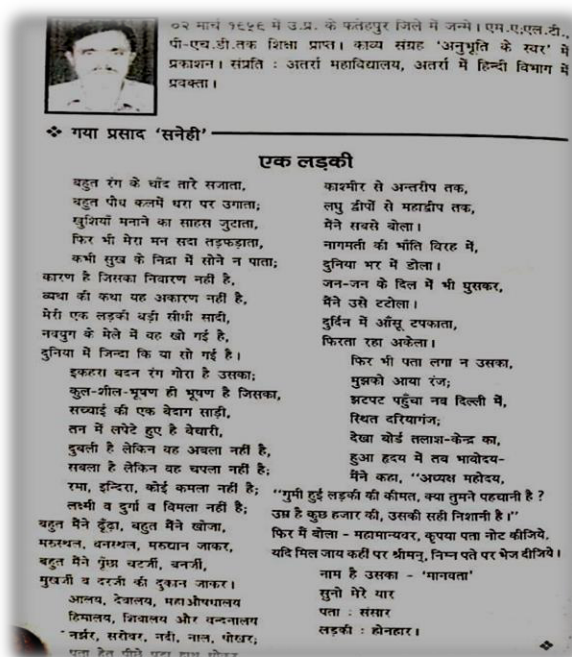 ०२ मार्च १९५६ में उ.प्र. के फतेहपुर जिले में जन्मे। एम.ए.एल.टी.,
पी-एच.डी.तक शिक्षा प्राप्त। काव्य संग्रह 'अनुभूति के स्वर' में
प्रकाशन। संप्रति : अतर्रा महाविद्यालय, अतर्रा में हिन्दी विभाग में
प्रवक्ता।
❖ गया प्रसाद 'सनेही'
एक लड़की
बहुत रंग के चाँद तारे सजाता,
बहुत पौध कलमें धरा पर उगाता;
खुशियाँ मनाने का साहस जुटाता,
फिर भी मेरा मन सदा तड़फड़ाता,
कभी सुख के निद्रा में सोने न पाता;
कारण है जिसका निवारण नहीं है,
व्यथा की कथा यह अकारण नहीं है,
मेरी एक लड़की बड़ी सीधी सादी,
नवयुग के मेले में वह खो गई है,
दुनिया में जिन्दा कि या सो गई है।
इकहरा बदन रंग गोरा है उसका;
कुल-शील-भूषण ही भूषण है जिसका,
सच्चाई की एक बेदाग साड़ी,
तन में लपेटे हुए है बेचारी,
दुबली है लेकिन वह अबला नहीं है,
सबला है लेकिन वह चपला नहीं है;
रमा, इन्दिरा, कोई कमला नहीं है;
लक्ष्मी व दुर्गा व विमला नहीं है;
बहुत मैंने ढूँढ़ा, बहुत मैंने खोजा,
मरुस्थल, वनस्थल, मरुद्यान जाकर,
बहुत मैंने पूँछा चटर्जी, बनर्जी,
मुखर्जी व दरजी की दुकान जाकर।
आलय, देवालय, महाऔषधालय
हिमालय, शिवालय और वन्दनालय
नर्झर, सरोवर, नदी, नाल, पोखर;
काश्मीर से अन्तरीप तक,
लघु द्वीपों से महाद्वीप तक,
मैंने सबसे बोला।
नागमती की भाँति विरह में,
दुनिया भर में डोला।
जन-जन के दिल में भी घुसकर,
मैंने उसे टटोला।
दुर्दिन में आँसू टपकाता,
फिरता रहा अकेला।
फिर भी पता लगा न उसका,
मुझको आया रंज;
झटपट पहुँचा नव दिल्ली में,
स्थित दरियागंज;
देखा बोर्ड तलाश-केन्द्र का,
हुआ हृदय में तब भावोदय-
मैंने कहा, "अध्यक्ष महोदय,
"गुमी हुई लड़की की कीमत, क्या तुमने पहचानी है ?
उम्र है कुछ हजार की, उसकी सही निशानी है।"
फिर मैं बोला - महामान्यवर, कृपया पता नोट कीजिये,
यदि मिल जाय कहीं पर श्रीमन्, निम्न पते पर भेज दीजिये।
नाम है उसका - 'मानवता'
सुनो मेरे यार
पता : संसार
लड़की : होनहार।